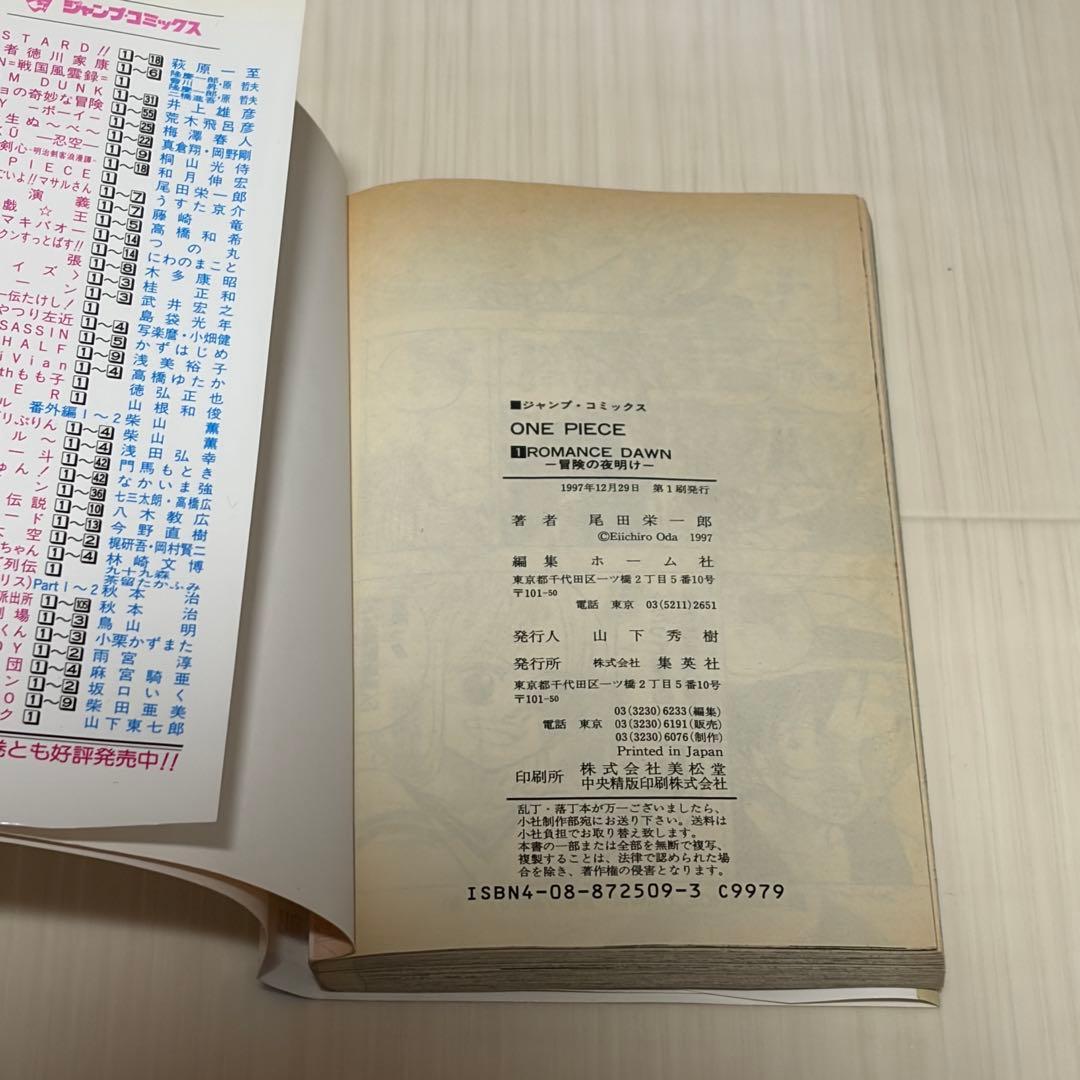 ジャンプ・コミックス
STARD!! 1〜18 萩原一至
者徳川家康 1〜6 隆慶一郎・原 哲夫
N=戦国風雲録= 1
M DUNK 1〜31 井上雄彦
ョの奇妙な冒険 1〜55 荒木飛呂彦
Y ーボーイー 1〜25 梅澤春人
生ぬ〜べ〜 1〜22 真倉翔・岡野剛
KŪ ―忍空― 1〜9 桐山光侍
剣心-明治剣客浪漫譚- 1〜18 和月伸宏
PIECE 1 尾田栄一郎
ごいよ!!マサルさん 1〜7 うすた京介
演義 1〜7 藤崎竜
戯☆王 1〜5 高橋和希
マキバオー 1〜14 つの丸
クンすっとばす!! 1〜14 にわのまこと
張 1〜6 木多康昭
イズ〉 1〜3 桂正和
ーン 1〜3 武井宏之
伝たけし! 島袋光年
やつり左近 1〜4 写楽麿・小畑健
SASSIN 1〜5 かずはじめ
HALF 1〜9 浅美裕子
iVian 1〜4 高橋ゆたか
thもも子 1 徳弘正也
ER 1 山根和俊
ル 番外編1〜2 柴山薫
リぷりん 1〜4 柴山薫
ル〜 1〜4 浅田弘幸
ー斗 1〜42 門馬もとき
ゅん! 1〜42 なかいま強
ン 1〜36 七三太朗・高橋広
伝説 1〜10 八木教広
ード 1〜13 今野直樹
空 1〜2 梶研吾・岡村賢二
ちゃん 1〜4 林崎文博
列伝 1 九十九森
リス)Part1〜2 秋本治
派出所 1〜105 秋本治
劇場 1〜3 鳥山明
くん 1〜3 小栗かずまた
OY 1〜2 雨宮淳
団 1〜4 麻宮騎亜
ン 1〜2 坂口いく
O 1〜9 柴田亜美
ク 1 山下東七郎
巻とも好評発売中!!
■ジャンプ・コミックス
ONE PIECE
1 ROMANCE DAWN
―冒険の夜明け―
1997年12月29日 第1刷発行
著者 尾田栄一郎
©Eiichiro Oda 1997
編集 ホーム社
東京都千代田区一ツ橋2丁目5番10号
〒101-50
電話 東京 03(5211)2651
発行人 山下秀樹
発行所 株式会社 集英社
東京都千代田区一ツ橋2丁目5番10号
〒101-50
03(3230)6233(編集)
電話 東京 03(3230)6191(販売)
03(3230)6076(制作)
Printed in Japan
印刷所 株式会社美松堂
中央精版印刷株式会社
乱丁・落丁本が万一ございましたら、
小社制作部宛にお送り下さい。送料は
小社負担でお取り替え致します。
本書の一部または全部を無断で複写、
複製することは、法律で認められた場
合を除き、著作権の侵害となります。
ISBN4-08-872509-3 C9979